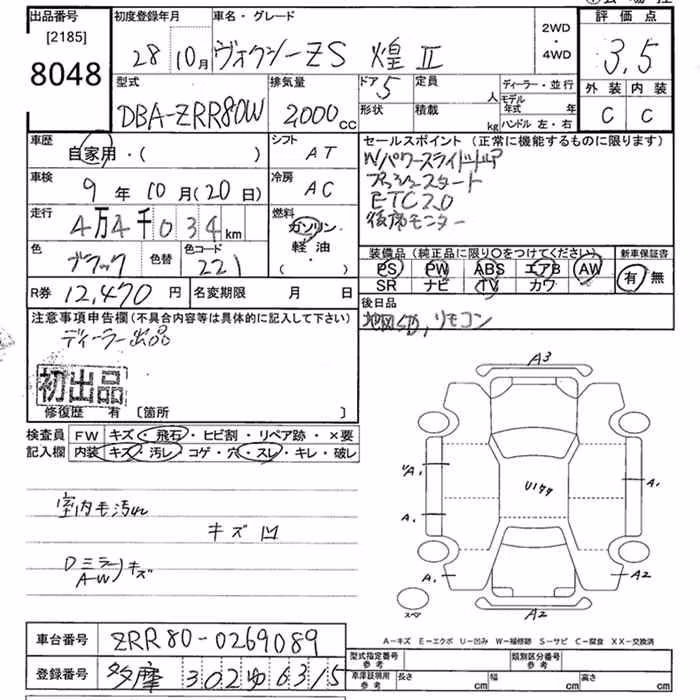 出品番号 初度登録年月 車名・グレード 2WD・4WD 評価点
[2185]
8048 28 10月 ヴォクシーZS 煌Ⅱ 3.5
型式 排気量 ドア 定員 ディーラー・並行 外装 内装
DBA-ZRR80W 2,000cc 5 人 モデル年式 年 C C
形状 積載 kg ハンドル 左・右
車歴 シフト セールスポイント(正常に機能するものに限ります)
自家用・( ) AT Wパワースライドドア
車検 冷房 プッシュスタート
9年10月(20日) AC ETC2.0
走行 燃料 後席モニター
4万4千034km ガソリン
軽油・( )
色 ブラック 色替 色コード 221
装備品(純正品に限り○をつけてください) 新車保証書
PS PW ABS エアB AW 有・無
SR ナビ TV カワ
R券 12,470円 名変期限 月 日 後日品
注意事項申告欄(不具合内容等は具体的に記入して下さい)
リモコン
ディーラー出品
初出品
修復歴 有 [箇所 ]
検査員記入欄 FW キズ・飛石・ヒビ割・リペア跡・×要
内装 キズ・汚レ・コゲ・穴・スレ・キレ・破レ
A3
A1
A1
U177
A1
A1
A2
A2
スペア
室内毛汚れ
キズ 凹
Dミラー
AW キズ
A-キズ E-エクボ U-凹み W-補修跡 S-サビ C-腐食 XX-交換済
車台番号 ZRR80-0269089
型式指定番号 参考 類別区分番号 参考
登録番号 多摩 302 ゆ 6315
車庫証明用 参考 長さ cm 幅 cm 高さ cm